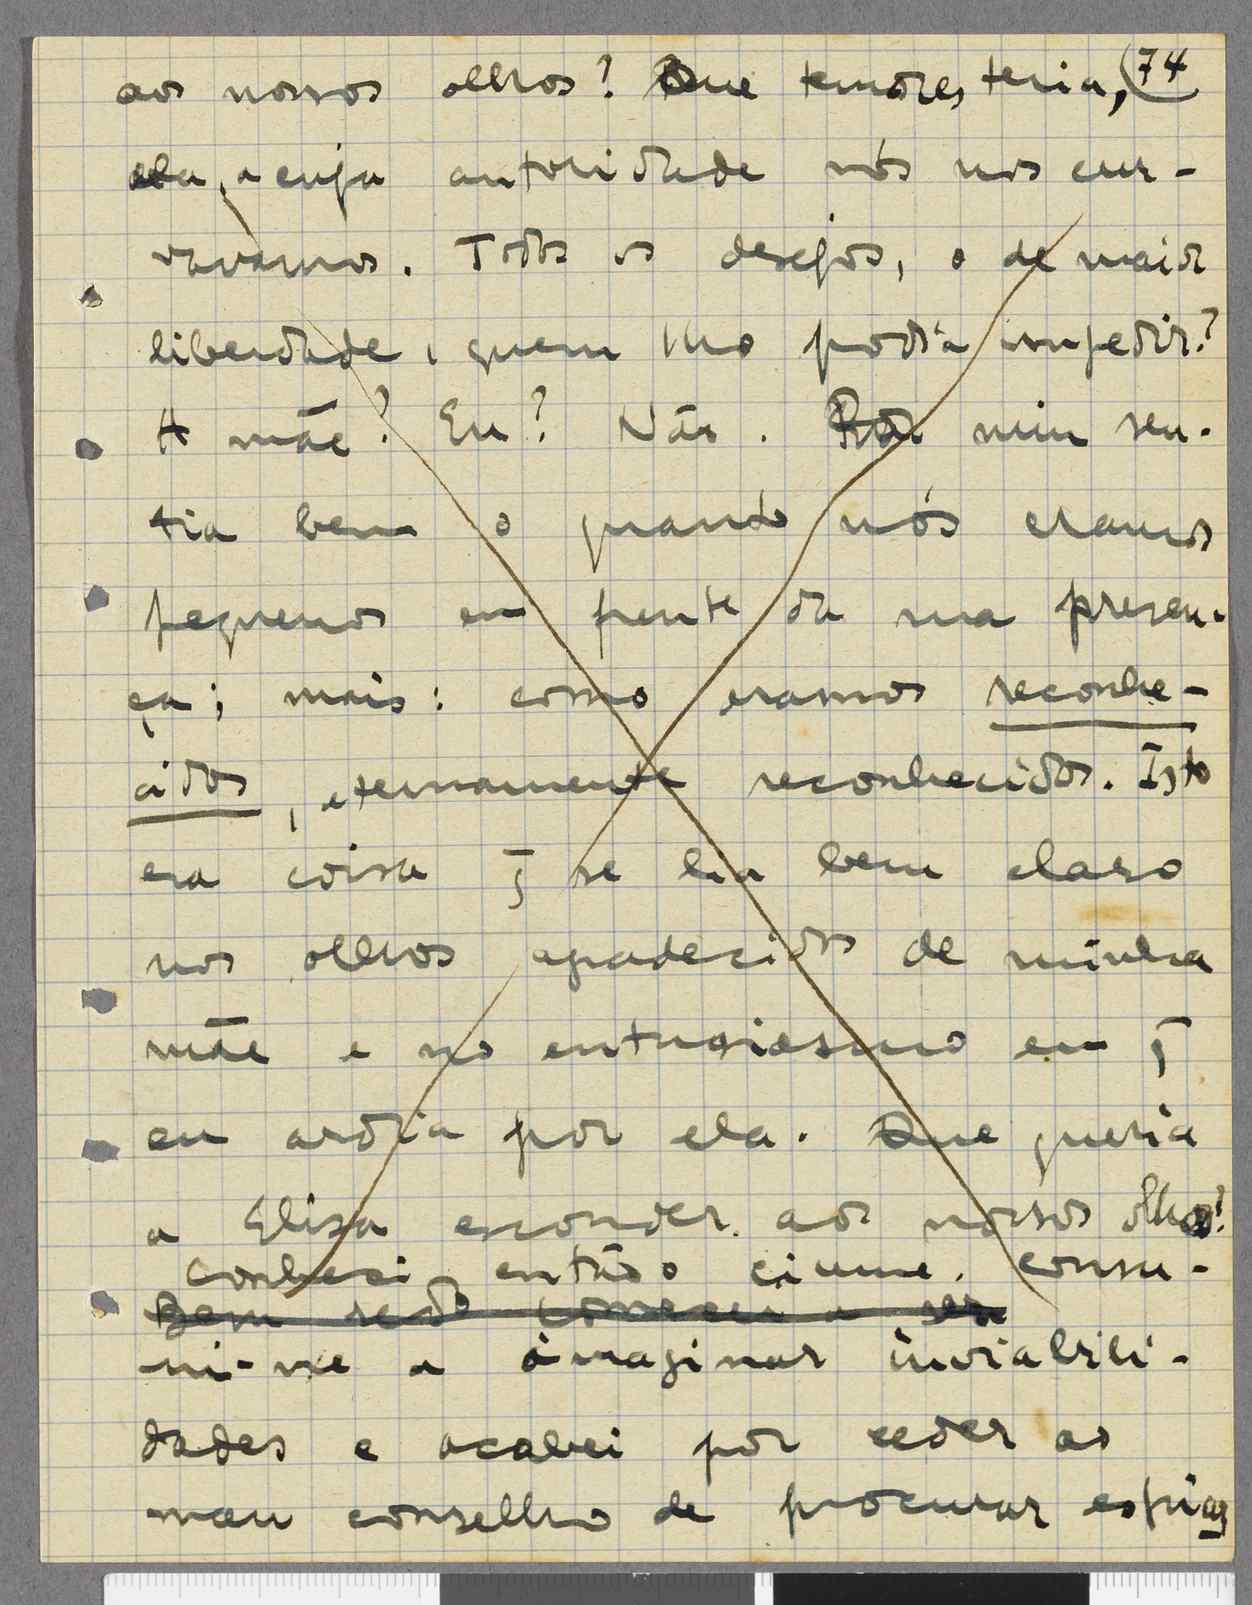 aos nossos olhos? Que temores teria, (74
ela, a cuja autoridade nós nos cur-
vavamos. Todos os desejos, o de maior
liberdade, quem lho podia impedir?
A mãe? Eu? Não. Por mim sen-
tia bem o quando nós eramos
pequenos em frente da sua presen-
ça; mais: como eramos reconhe-
cidos, eternamente reconhecidos. Isto
era coisa q̄ se lia bem claro
nos olhos agradecidos de minha
mãe e no entusiasmo em q̄
eu ardia por ela. Que queria
a Elisa esconder aos nossos olhos?
Conheci então o ciume. Consu-
Bem cedo comecei a ser
mi-me a imaginar inviabili-
dades e acabei por ceder ao
mau conselho de procurar espiar